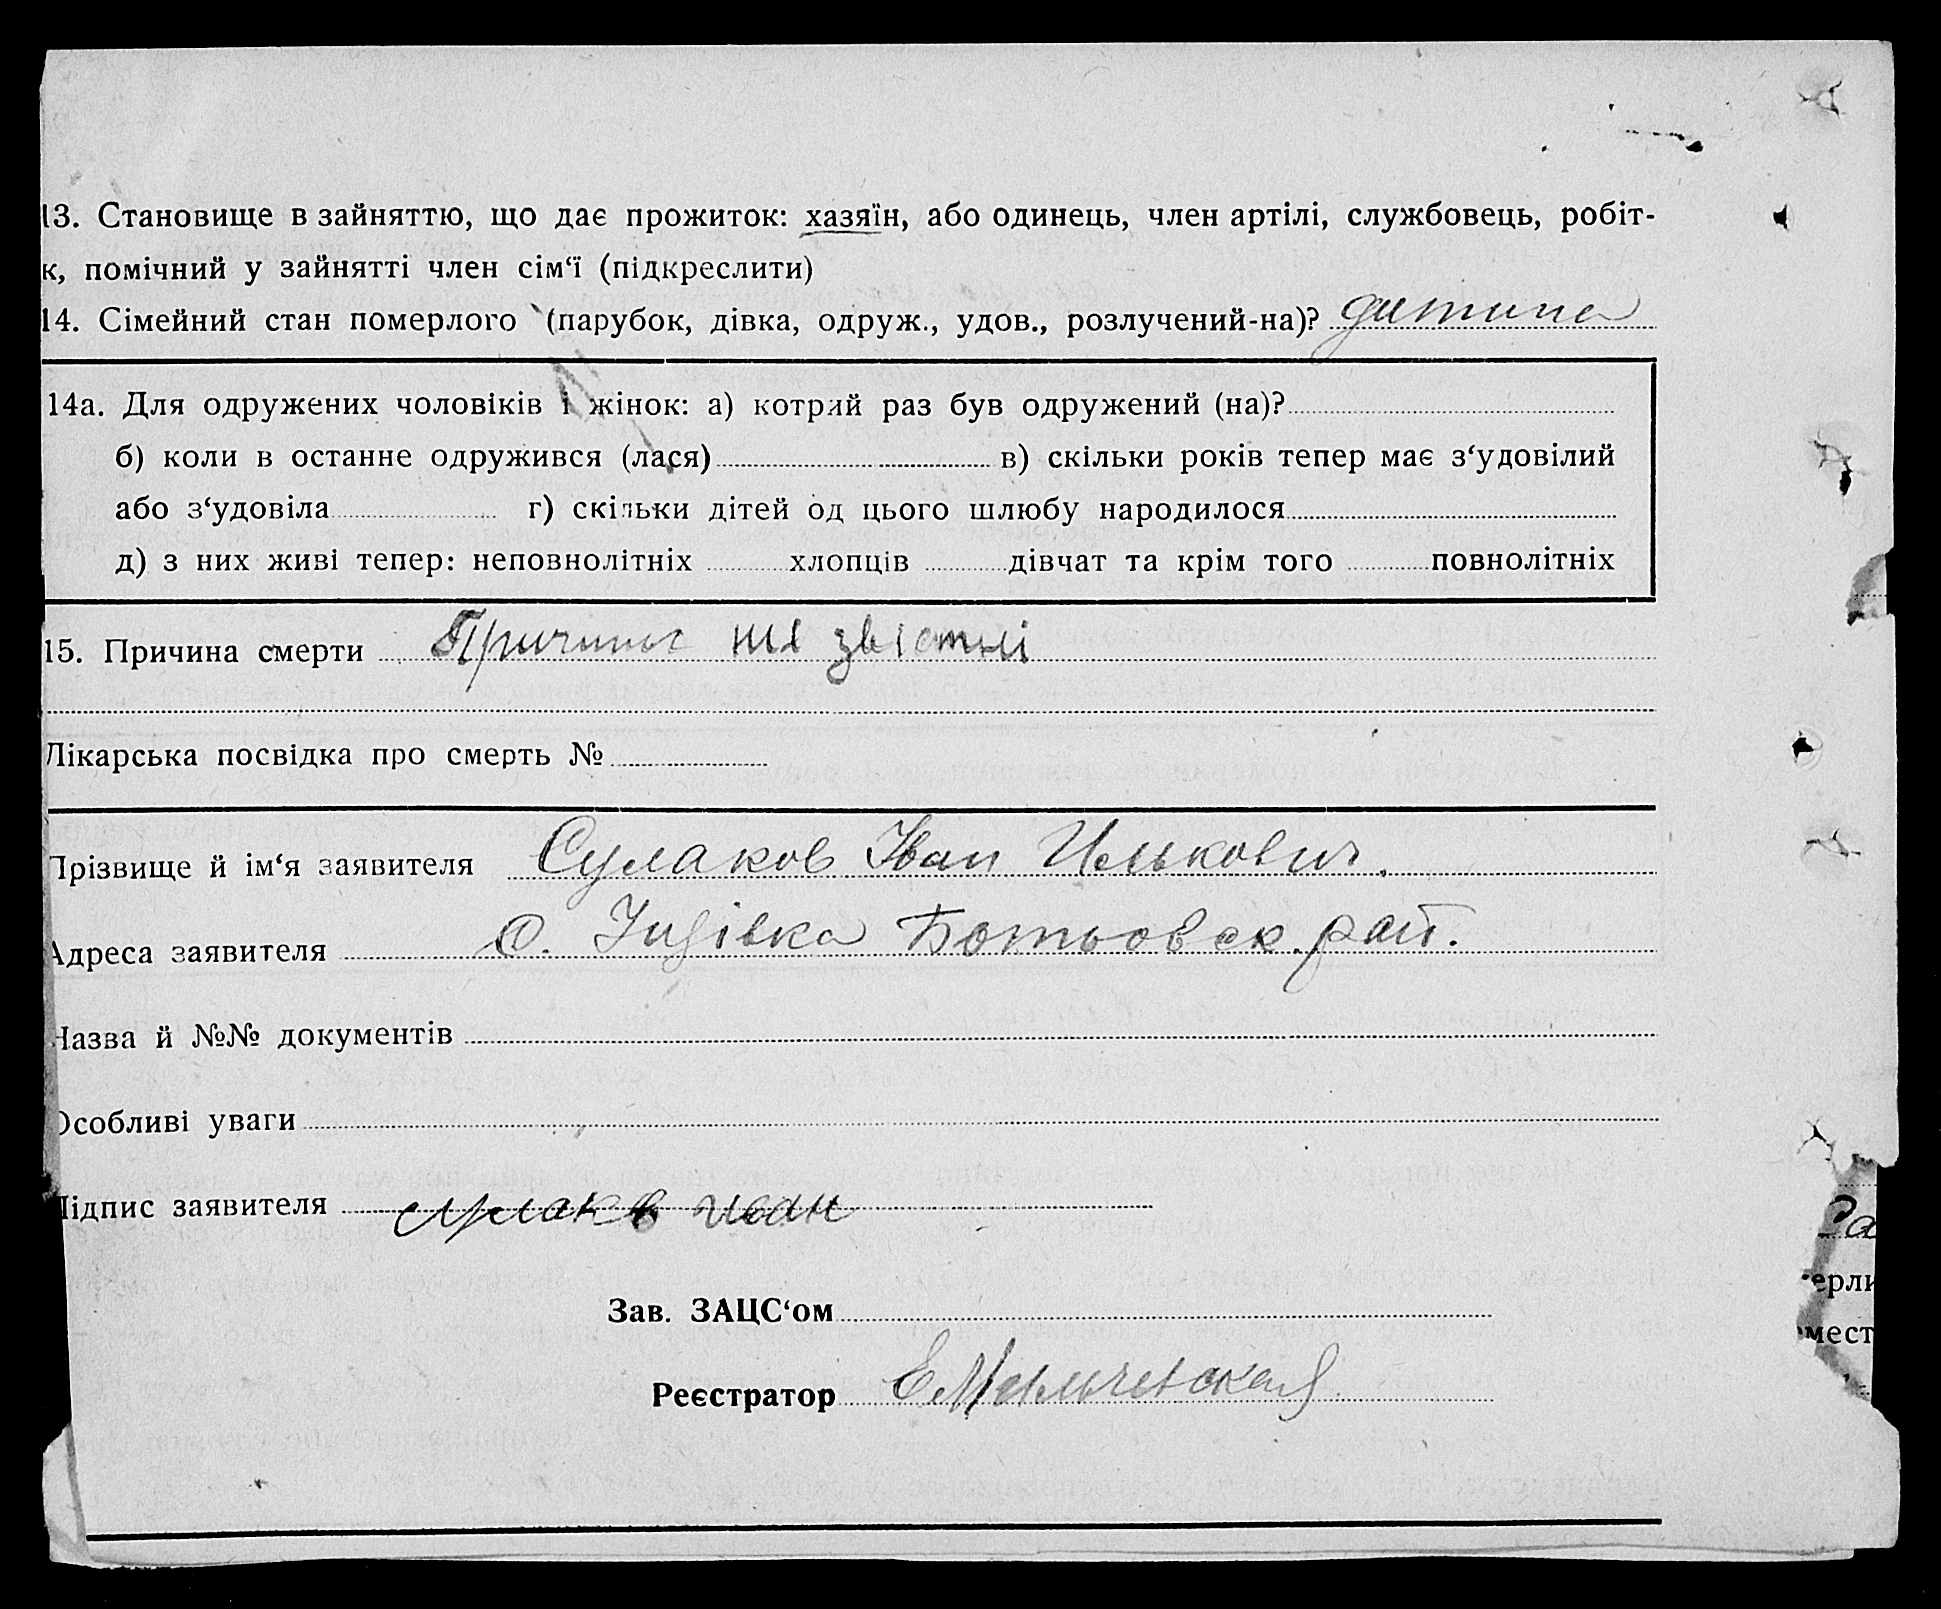 13. Становище в зайняттю, що дає прожиток: хазяїн, або одинець, член артілі, службовець, робіт-
к, помічний у зайнятті член сім‘ї (підкреслити)
14. Сімейний стан померлого (парубок, дівка, одруж., удов., розлучений-на)? дитина
14а. Для одружених чоловіків і жінок: а) котрий раз був одружений (на)?
б) коли в останне одружився (лася) в) скільки років тепер має з‘удовілий
або з‘удовіла г) скільки дітей од цього шлюбу народилося
д) з них живі тепер: неповнолітніх хлопців дівчат та крім того повнолітніх
15. Причина смерти Причина не звістні
Лікарська посвідка про смерть №
Прізвище й ім‘я заявителя Сулаков Іван Илькович.
Адреса заявителя с. Ботьовск. рай.
Назва й №№ документів
Особливі уваги
Підпис заявителя
Зав. ЗАЦС‘ом
Реєстратор
ерли
мест